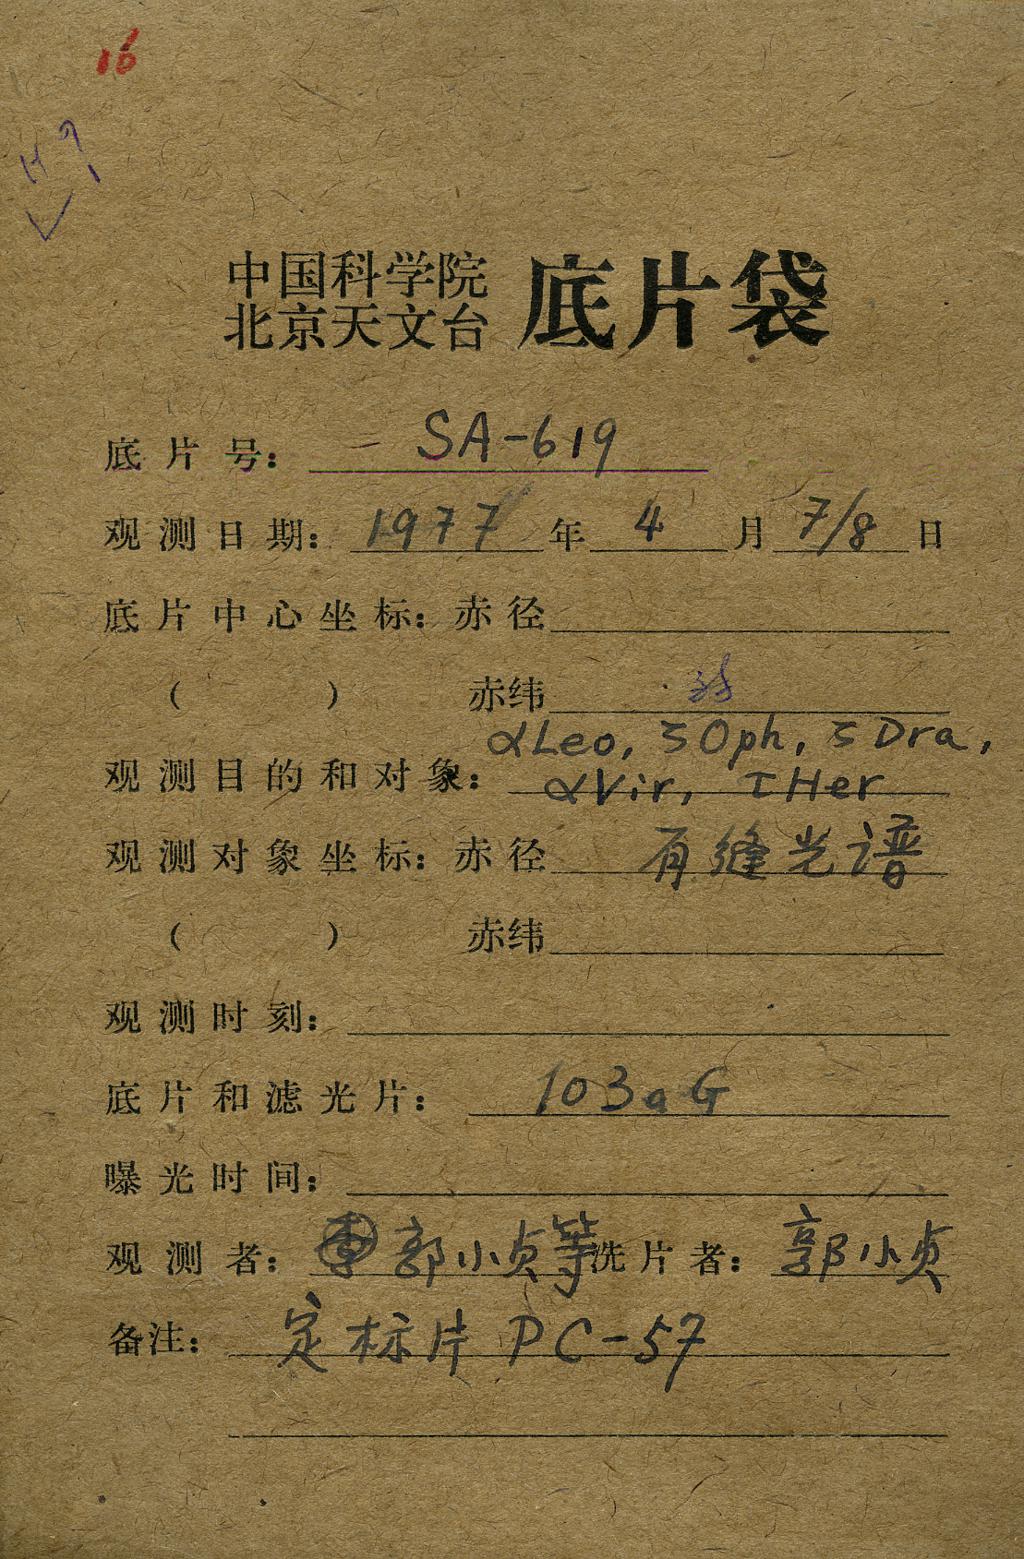 16
中国科学院
北京天文台 底片袋
底片号: SA-619
观测日期: 1977 年 4 月 7/8 日
底片中心坐标: 赤径
( ) 赤纬
αLeo, ζOph, ζDra,
观测目的和对象: αVir, τHer
观测对象坐标: 赤径 有缝光谱
( ) 赤纬
观测时刻:
底片和滤光片: 103aG
曝光时间:
观测者: 郭小贞等 洗片者: 郭小贞
备注: 定标片 PC-57